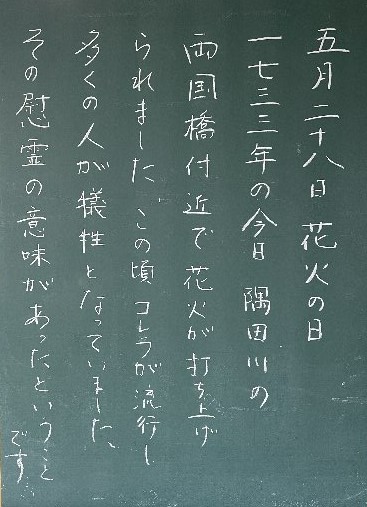 五月二十八日 花火の日
一七三三年の今日 隅田川の
両国橋付近で花火が打ち上げ
られました この頃コレラが流行し
多くの人が犠牲となっていました、
その慰霊の意味があったということ
です